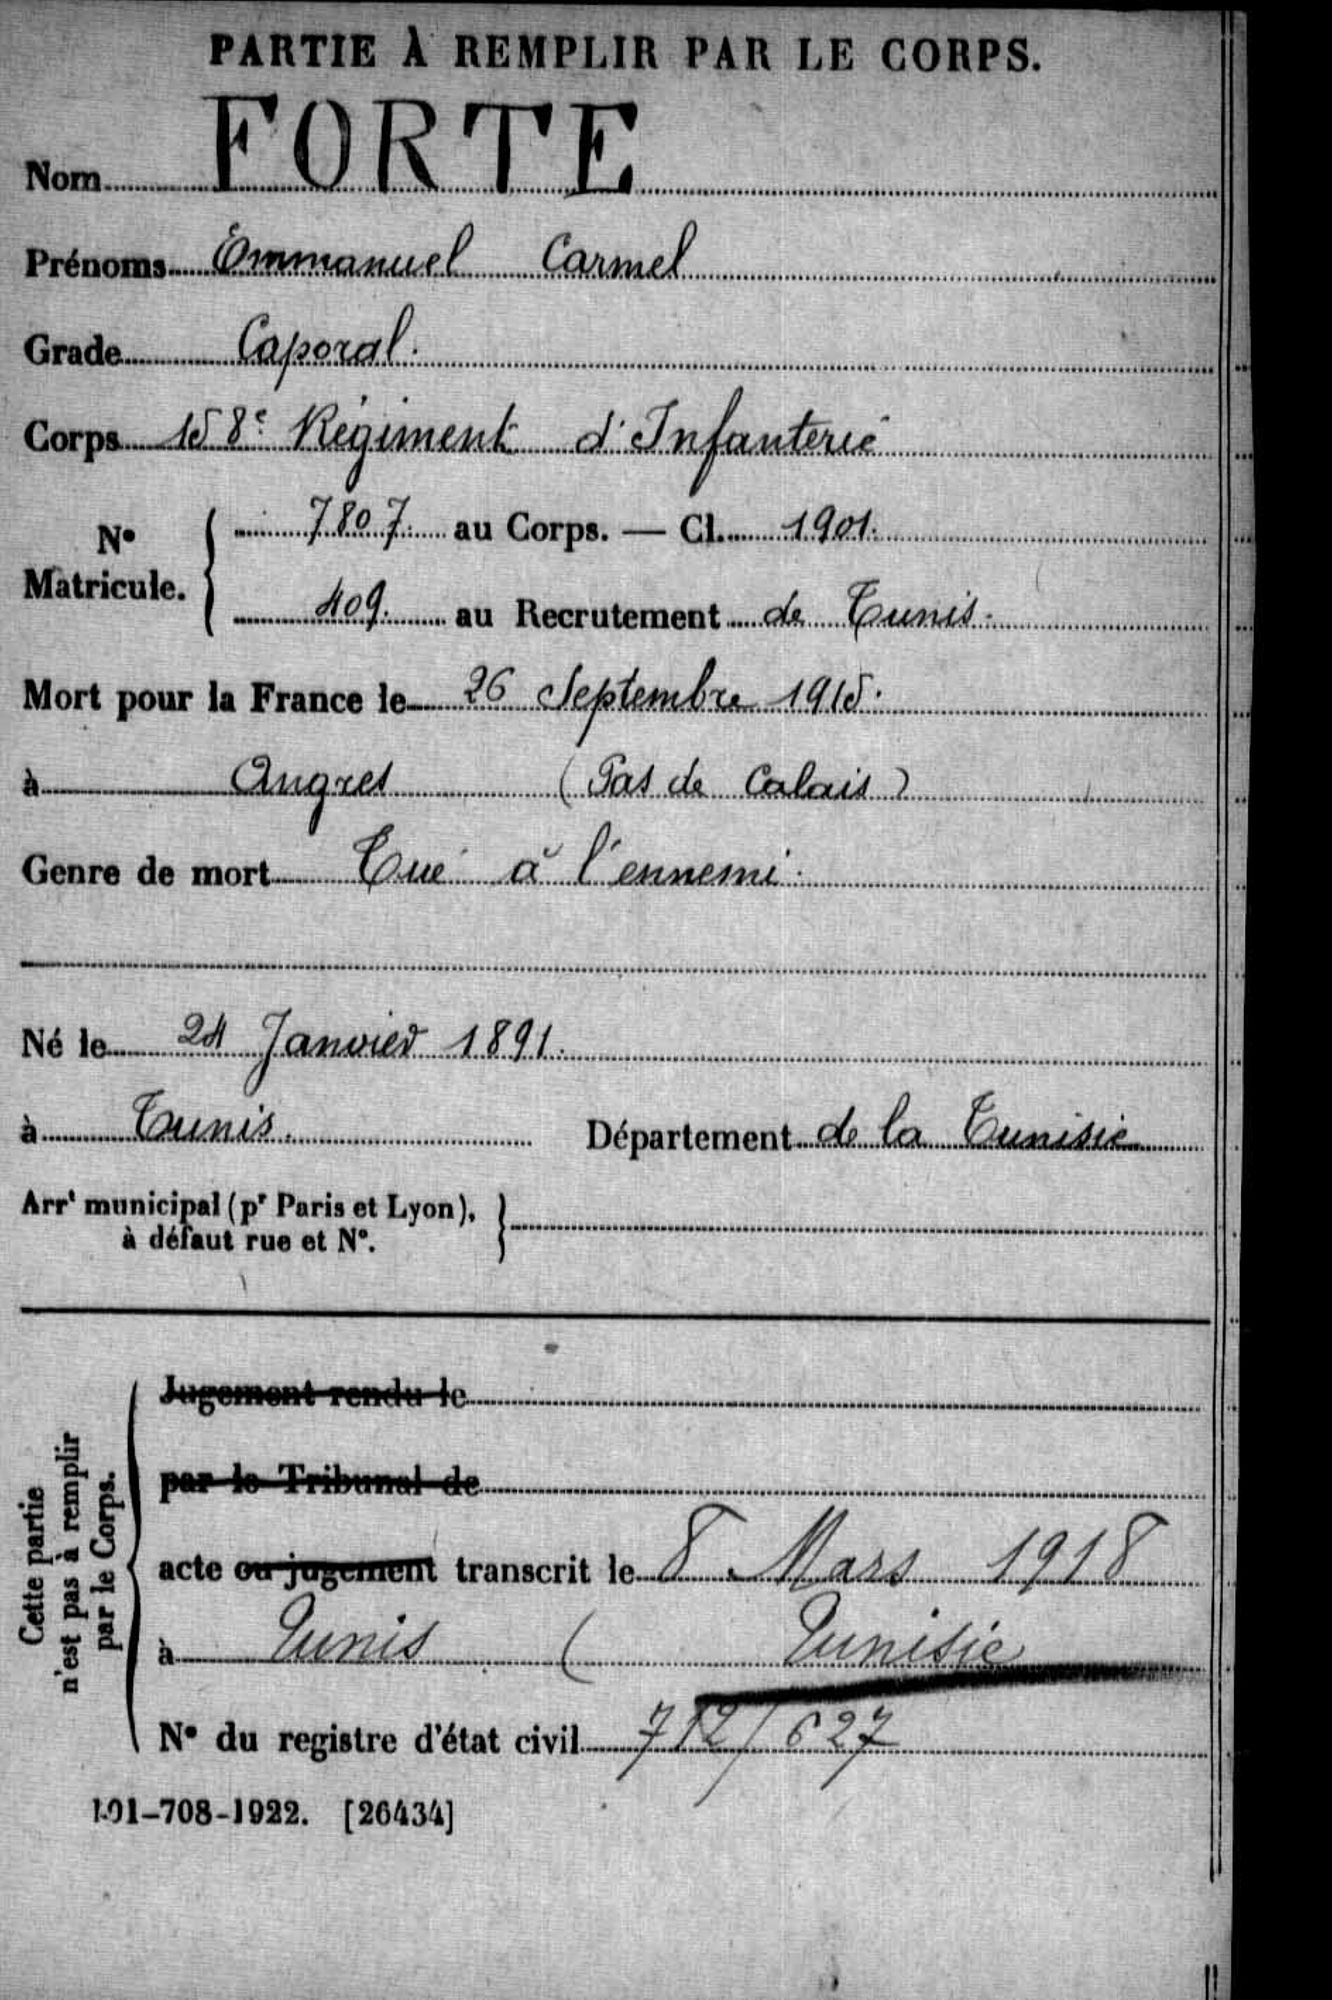 PARTIE À REMPLIR PAR LE CORPS.
Nom FORTE
Prénoms Emmanuel Carmel
Grade Caporal.
Corps 158e Régiment d'Infanterie
N° Matricule. { 7807 au Corps. — Cl. 1901.
409. au Recrutement de Tunis.
Mort pour la France le 26 Septembre 1915.
à Angres (Pas de Calais)
Genre de mort Tué à l'ennemi.
Né le 24 Janvier 1891.
à Tunis. Département de la Tunisie
Arrt municipal (pr Paris et Lyon),
à défaut rue et N°.
Cette partie
n'est pas à remplir
par le Corps.
Jugement rendu le
par le Tribunal de
acte ou jugement transcrit le 8 Mars 1918
à Tunis ( Tunisie
N° du registre d'état civil 712/627
101-708-1922. [26434]